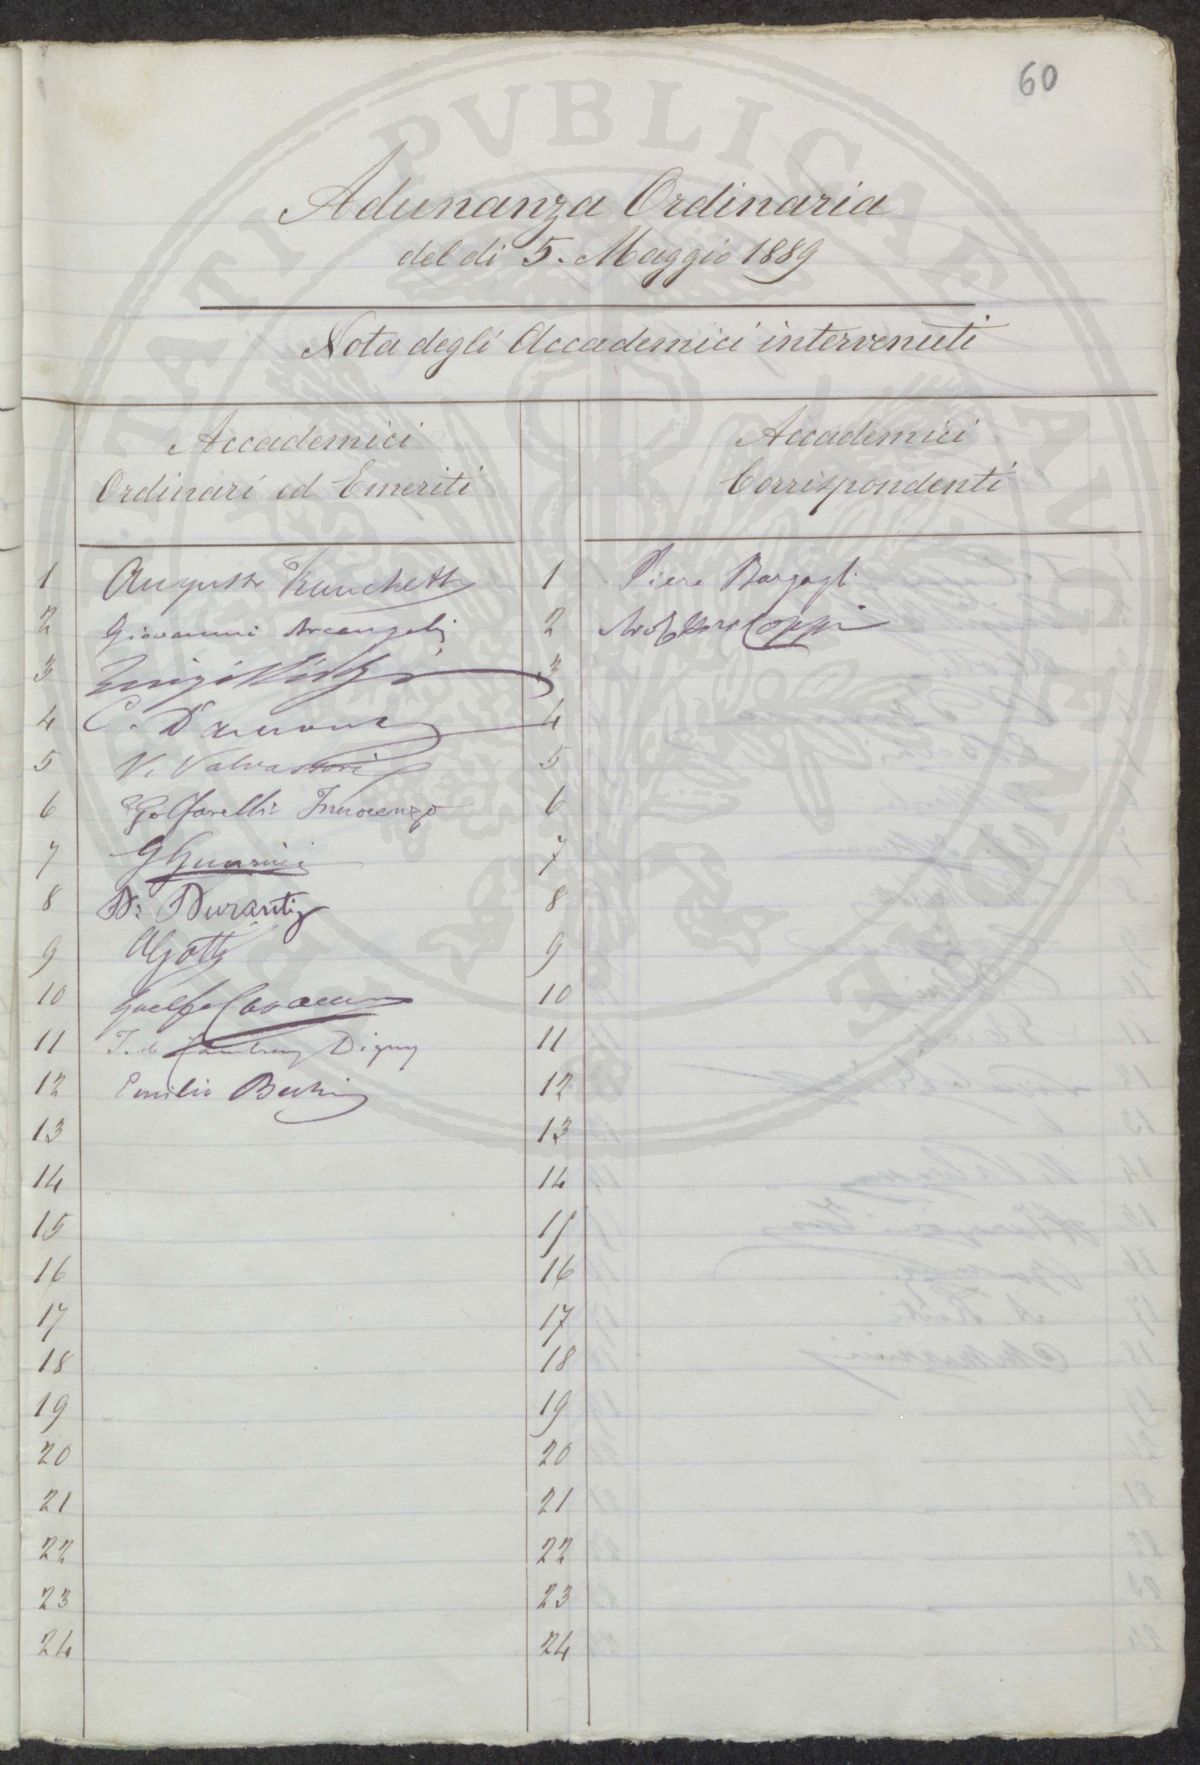 60
Adunanza Ordinaria
del di 5. Maggio 1889
Nota degli Accademici intervenuti
Accademici
Ordinari ed Emeriti
Accademici
Corrispondenti
1 Augusto Franchetti 1 Piero Bargagli
2 Giovanni Arcangeli 2 Coppi
3 Luigi 3
4 C. 4
5 V. Valvassori 5
6 Golfarelli Innocenzo 6
7 G Guarini 7
8 Dr Duranti 8
9 AGotti 9
10 Guelfo Cavacciocchi 10
11 T. de Cambray Digny 11
12 Emilio Bechi 12
13 13
14 14
15 15
16 16
17 17
18 18
19 19
20 20
21 21
22 22
23 23
24 24